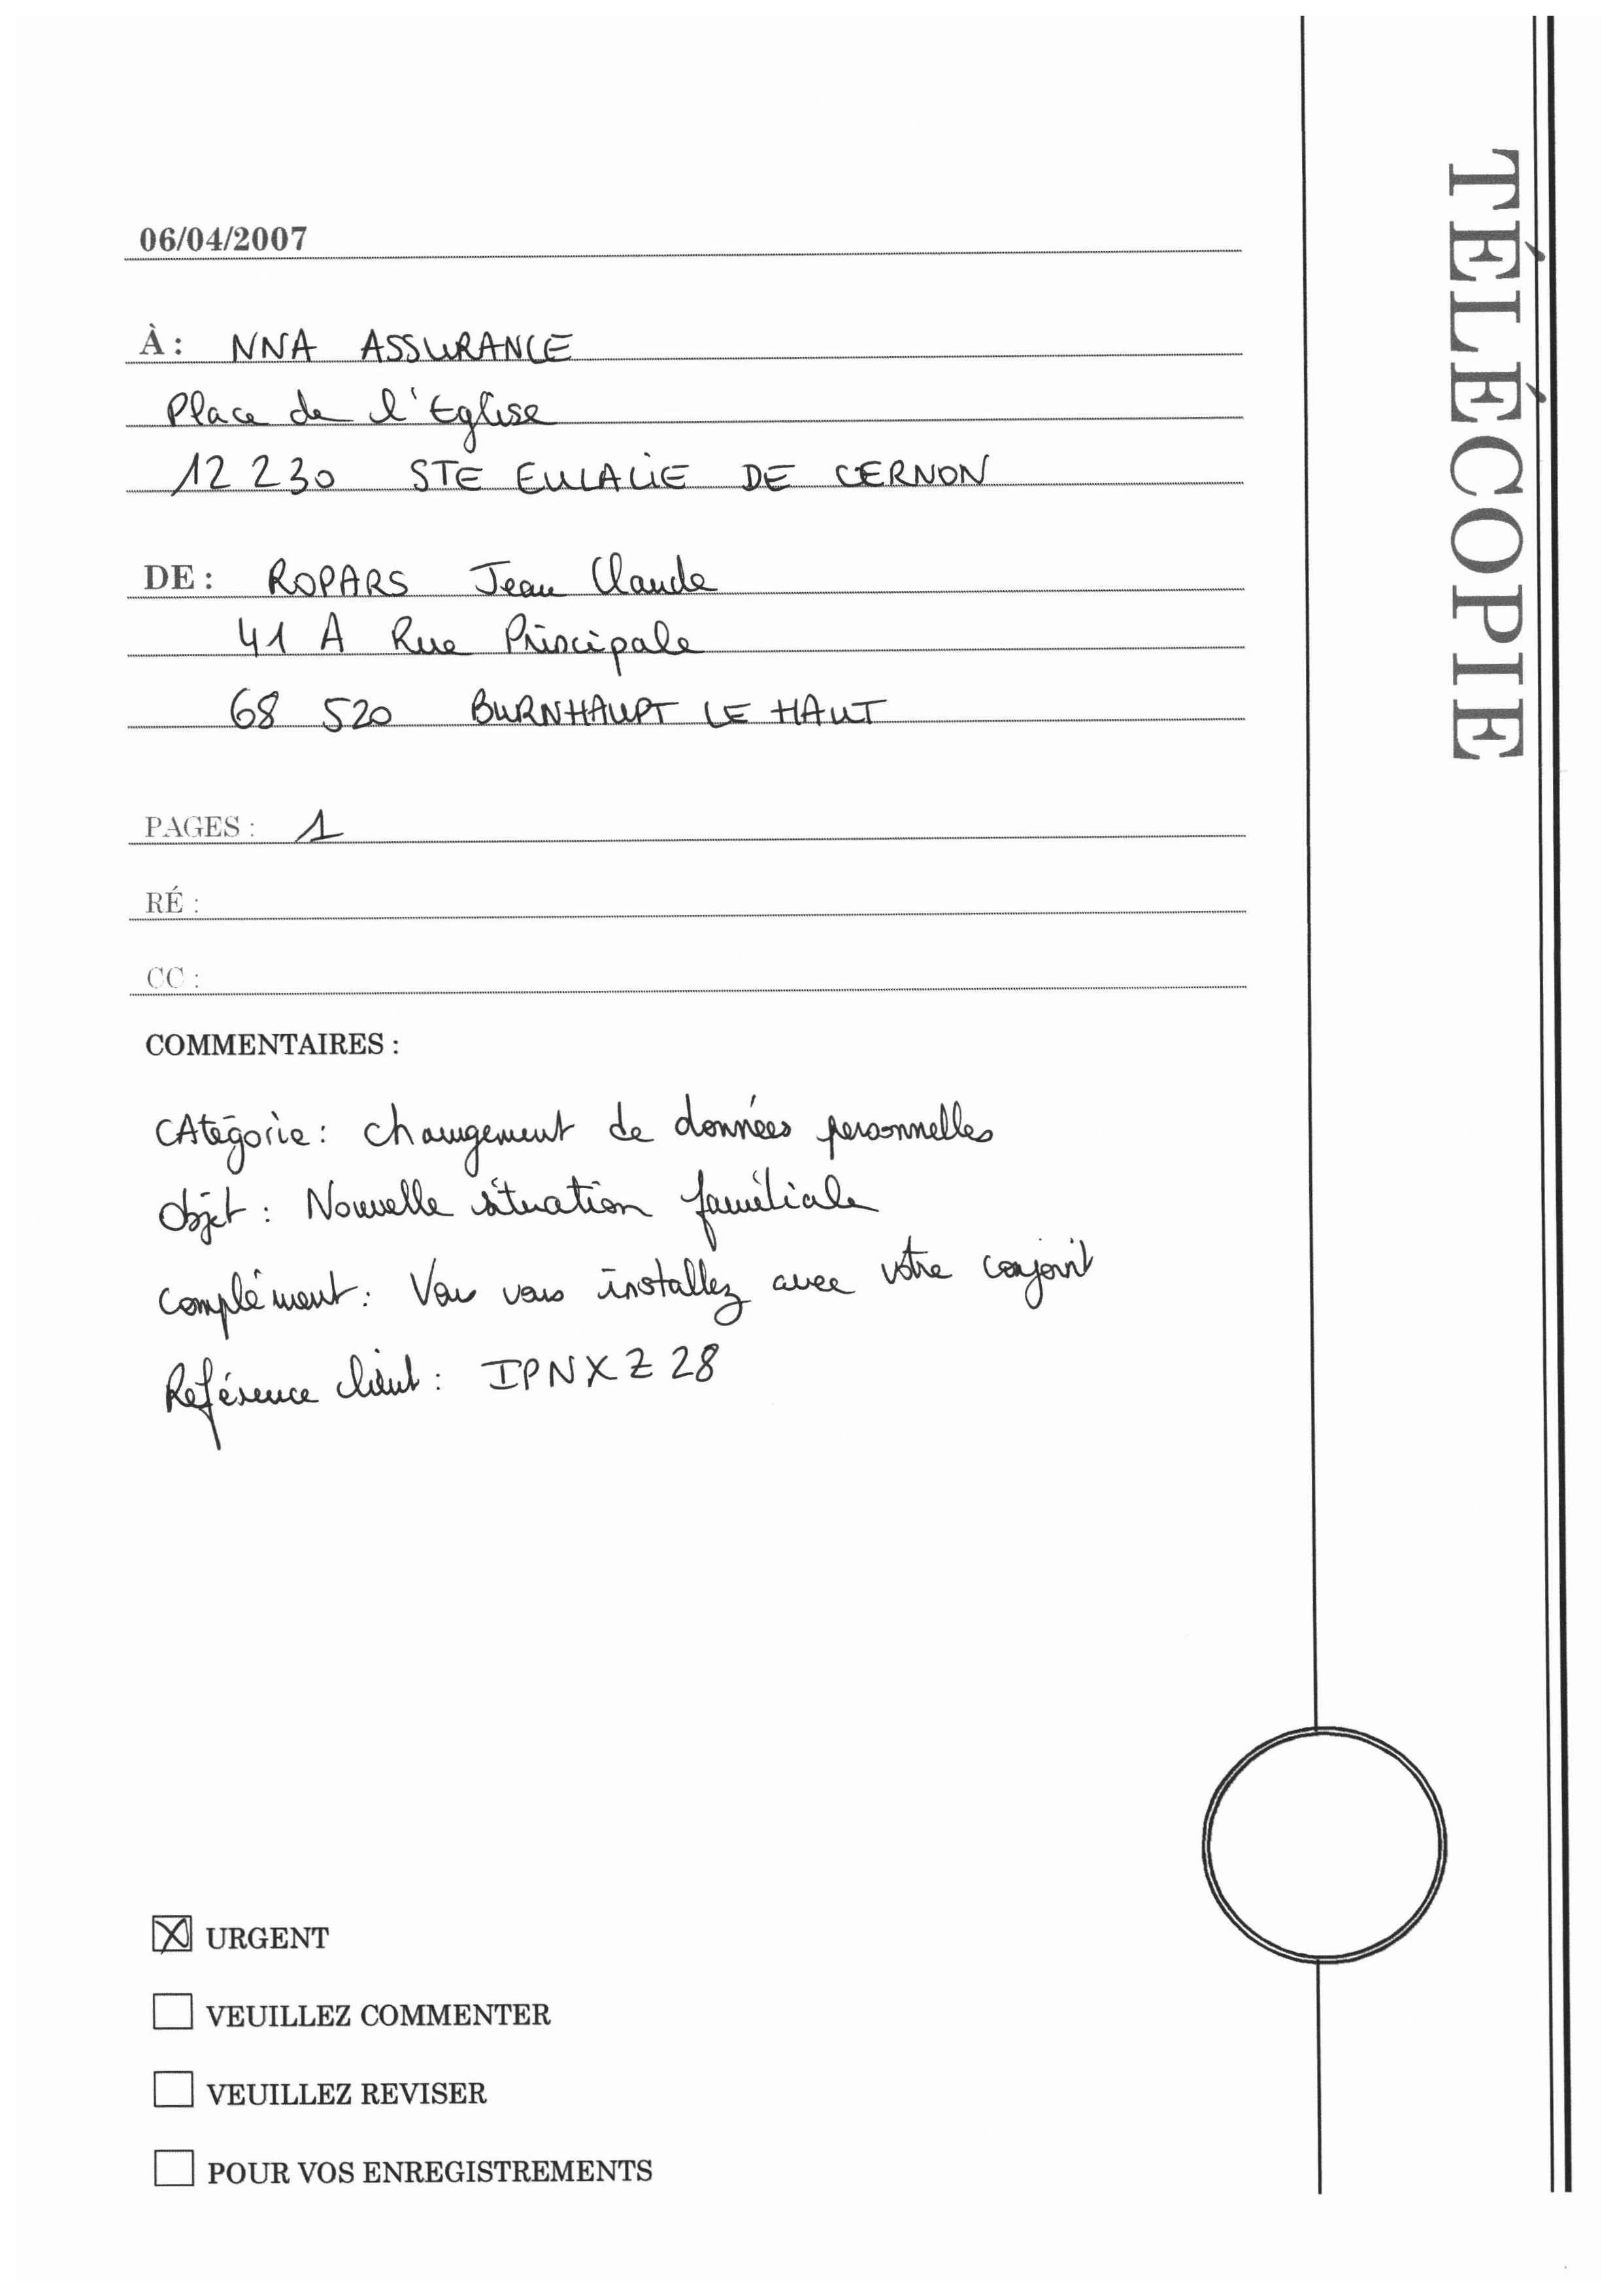 TÉLÉCOPIE
06/04/2007
À : NNA ASSURANCE
Place de l'Eglise
12 230 STE EULALIE DE CERNON
DE : ROPARS Jean Claude
41 A Rue Principale
68 520 BURNHAUPT LE HAUT
PAGES : 1
RÉ :
CC :
COMMENTAIRES :
CAtégorie : changement de données personnelles
Objet : Nouvelle situation familiale
Complément : Vous vous installez avec votre conjoint
Référence client : IPNXZ28
URGENT
VEUILLEZ COMMENTER
VEUILLEZ REVISER
POUR VOS ENREGISTREMENTS